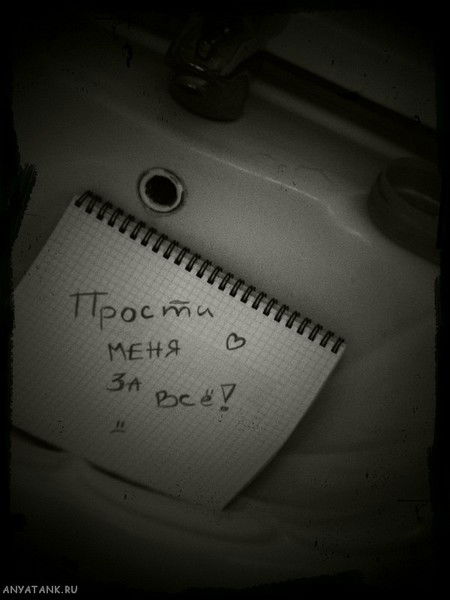 Прости
меня
за
всё!
ANYATANK.RU